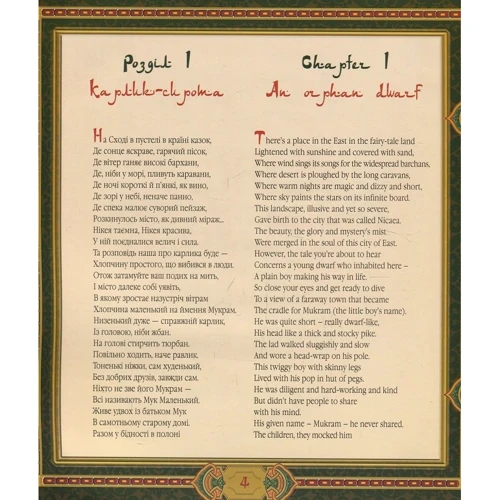 Розділ 1
Карлик-сирота
На Сході в пустелі в країні казок,
Де сонце яскраве, гарячий пісок,
Де вітер ганяє високі бархани,
Де, ніби у морі, пливуть каравани,
Де ночі короткі й п'янкі, як вино,
Де зорі у небі, неначе панно,
Де спека малює суворий пейзаж,
Розкинулось місто, як дивний міраж...
Нікея таємна, Нікея красива,
У ній поєдналися велич і сила.
Та розповідь наша про карлика буде —
Хлопчину простого, що вибився в люди.
Отож затамуйте ваш подих на мить,
І місто далеке собі уявіть,
В якому зростає назустріч вітрам
Хлопчина маленький на ймення Мукрам.
Низенький дуже — справжній карлик,
Із головою, ніби жбан.
На голові стирчить тюрбан.
Повільно ходить, наче равлик.
Тоненькі ніжки, сам худенький,
Без добрих друзів, завжди сам.
Ніхто не зве його Мукрам —
Всі називають Мук Маленький.
Живе удвох із батьком Мук
В самотньому старому домі.
Разом у бідності в полоні
Chapter 1
An orphan dwarf
There's a place in the East in the fairy-tale land
Lightened with sunshine and covered with sand,
Where wind sings its songs for the widespread barchans,
Where desert is ploughed by the long caravans,
Where warm nights are magic and dizzy and short,
Where sky paints the stars on its infinite board.
This landscape, illusive and yet so severe,
Gave birth to the city that was called Nicaea.
The beauty, the glory and mystery's mist
Were merged in the soul of this city of East.
However, the tale you're about to hear
Concerns a young dwarf who inhabited here –
A plain boy making his way in life.
So close your eyes and get ready to dive
To a view of a faraway town that became
The cradle for Mukram (the little boy's name).
He was quite short – really dwarf-like,
His head like a thick and stocky pike.
The lad walked sluggishly and slow
And wore a head-wrap on his pole.
This twiggy boy with skinny legs
Lived with his pop in hut of pegs.
He was diligent and hard-working and kind
But didn't have people to share
with his mind.
His given name – Mukram – he never shared.
The children, they mocked him
4